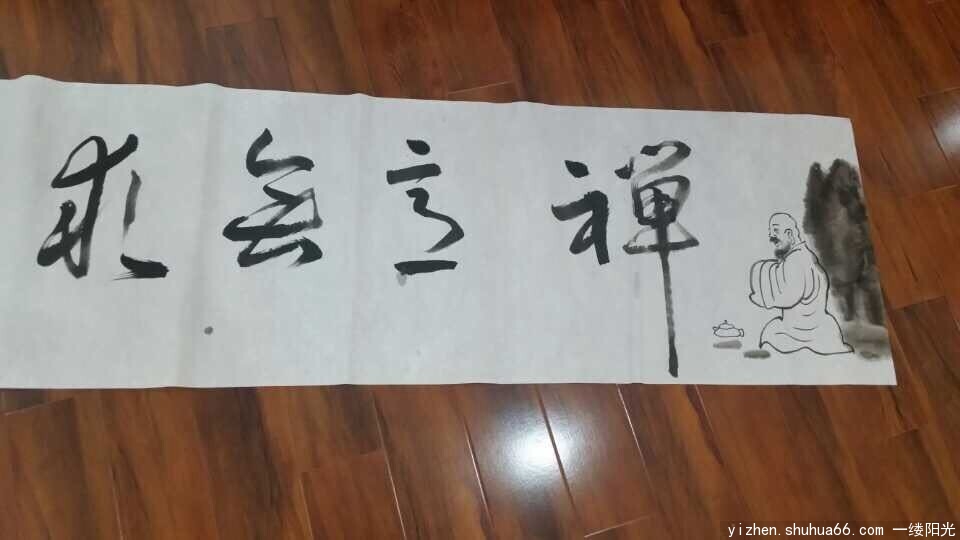 禅言無
yizhen.shuhua66.com 一缕阳光